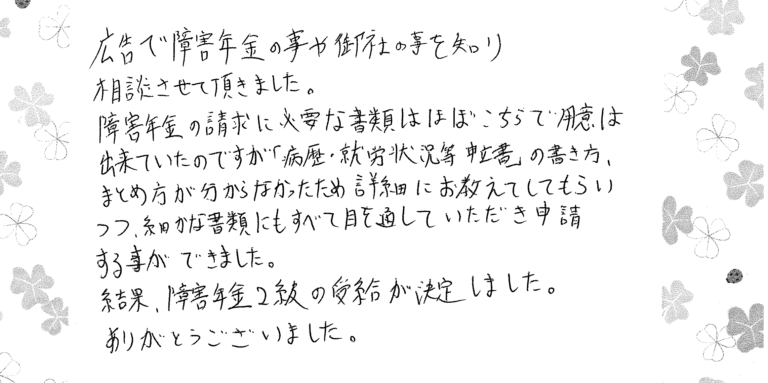 広告で障害年金の事や御社の事を知り
相談させて頂きました。
障害年金の請求に必要な書類はほぼこちらで用意は
出来ていたのですが「病歴・就労状況等申立書」の書き方、
まとめ方が分からなかったため詳細にお教えてしてもらい
つつ、細かな書類にもすべて目を通していただき申請
する事ができました。
結果、障害年金2級の受給が決定しました。
ありがとうございました。